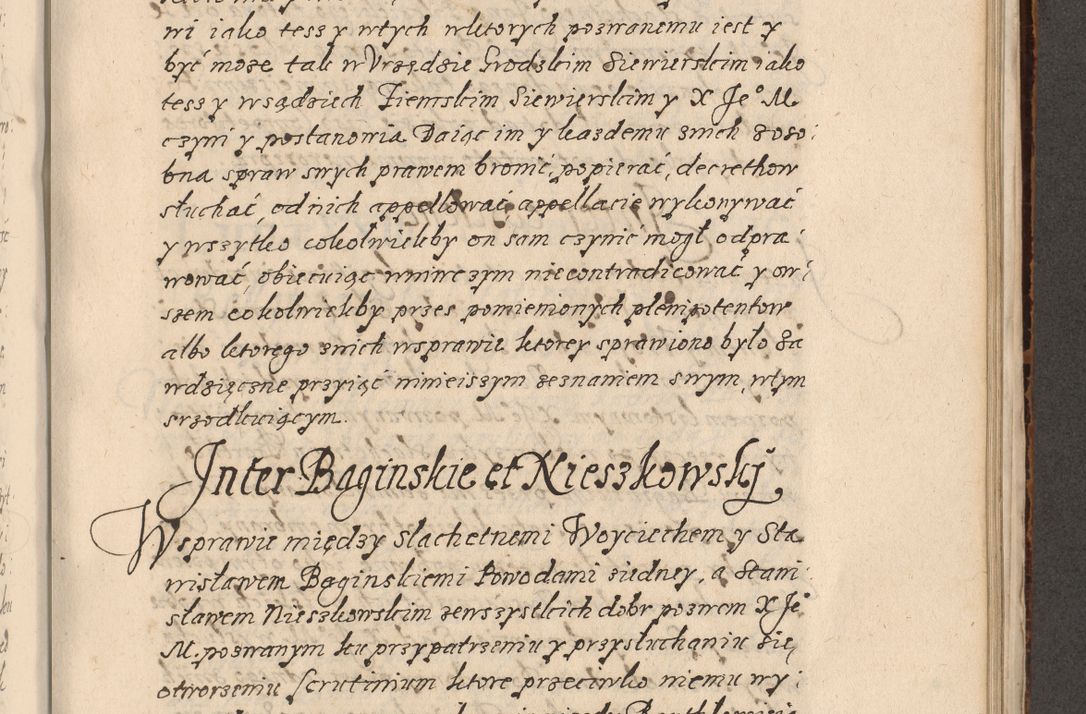 wi iako tesz y wtych wktorych pozwanemu iest y
być może tak w Vrzędzie Grodzkim Siewierskim iako
tesz y wsądziech Ziemskim Siewierskim y X Je° M.
czyni y postanowia Daiąc im y kazdemu znich zoso:
bna spraw swych prawem bronić, popierać, decrethow
słuchać, od nich appellować, appellacie wykonywać
y wszytko cokolwiekby on sam czynić mogł odpra:
wować, obiecuiąc wniwczym niecontradicować, y ow:
szem cokolwiekby przes pomienionych plenipotentow
albo ktorego znich wsprawie ktorey sprawiono było za
wdzięczne przyiąć ninieiszym zeznaniem swym, wtym
srzodkuiącym.
Inter Baginskie et Nieszkowskj
W sprawie między Slachetnemi Woyciechem y Sta
nisławem Baginskiemi Powodami ziedney, a Stani
sławem Nieszkowskim zewszystkich dobr pozwem X Je°
M. pozwanym ku przypatrzeniu y przysłuchaniu się
otworzeniu Scrutinium ktore przeciwko niemu wy: